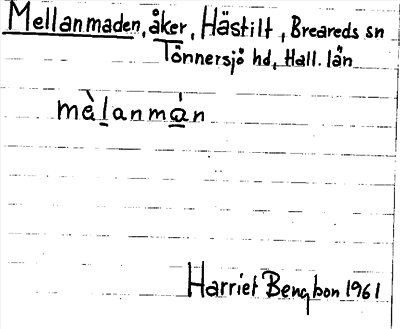 Mellanmaden, åker, Hästilt, Breareds sn
Tönnersjö hd, Hall. län
mèlanmán
Harriet Bengtson 1961